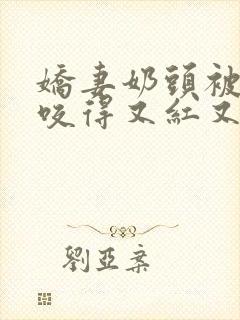 嬌妻奶頭被
咬得又紅又
劉亞案